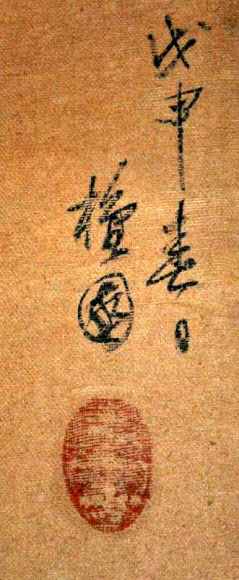 戊申春日
檀園